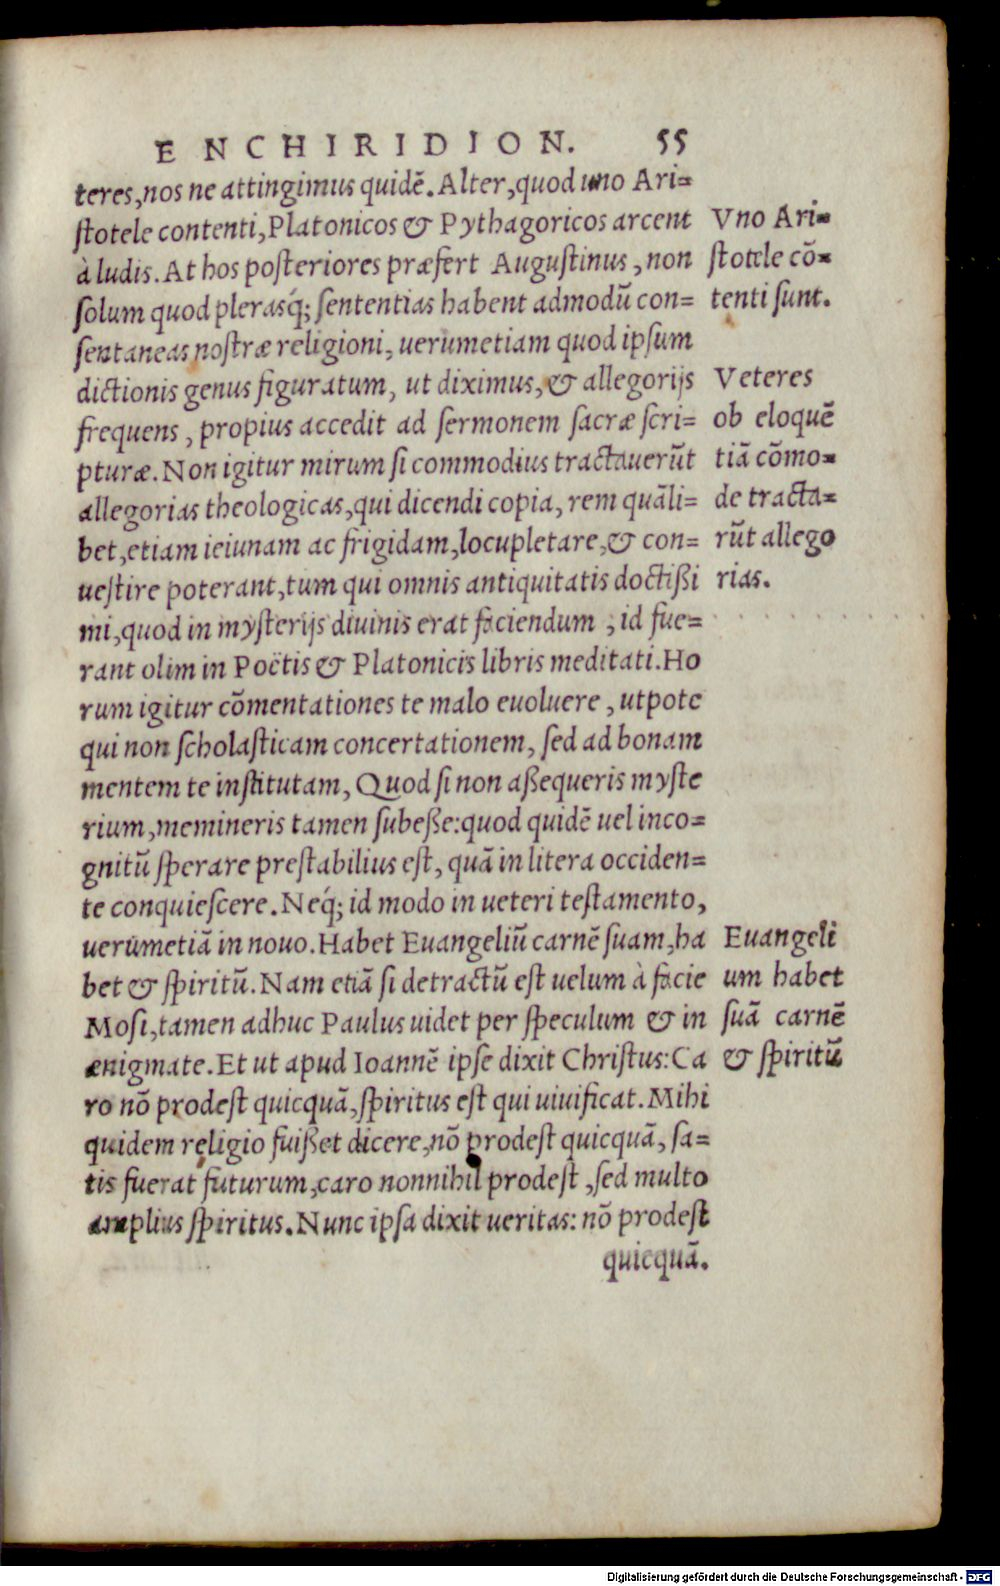 ENCHIRIDION. 55
teres,nos ne attingimus quidē. Alter,quod uno Ari=
stotele contenti,Platonicos & Pythagoricos arcent
à ludis. At hos posteriores præfert Augustinus, non
solum quod plerasq́; sententias habent admodū con=
sentaneas nostræ religioni, uerumetiam quod ipsum
dictionis genus figuratum, ut diximus, & allegorijs
frequens, propius accedit ad sermonem sacræ scri=
pturæ. Non igitur mirum si commodius tractauerūt
allegorias theologicas,qui dicendi copia, rem quāli=
bet,etiam ieiunam ac frigidam,locupletare,& con=
uestire poterant,tum qui omnis antiquitatis doctißi
mi,quod in mysterijs diuinis erat faciendum, id fue=
rant olim in Poëtis & Platonicis libris meditati. Ho
rum igitur cōmentationes te malo euoluere, utpote
qui non scholasticam concertationem, sed ad bonam
mentem te institutam, Quod si non aßequeris myste
rium,memineris tamen subeße:quod quidē uel inco=
gnitū sperare prestabilius est, quā in litera occiden=
te conquiescere. Neq́; id modo in ueteri testamento,
uerumetiā in nouo. Habet Euangeliū carnē suam,ha
bet & spiritū. Nam etiā si detractū est uelum à facie
Mosi,tamen adhuc Paulus uidet per speculum & in
ænigmate. Et ut apud Ioannē ipse dixit Christus: Ca
ro nō prodest quicquā,spiritus est qui uiuificat. Mihi
quidem religio fuißet dicere,nō prodest quicquā, sa=
tis fuerat futurum,caro nonnihil prodest, sed multo
amplius spiritus. Nunc ipsa dixit ueritas: nō prodest
quicquā.
Vno Ari=
stotele cō=
tenti sunt.
Veteres
ob eloquē
tiā cōmo=
de tracta=
rūt allego
rias.
Euangeli
um habet
suā carnē
& spiritū
Digitalisierung gefördert durch die Deutsche Forschungsgemeinschaft - DFG